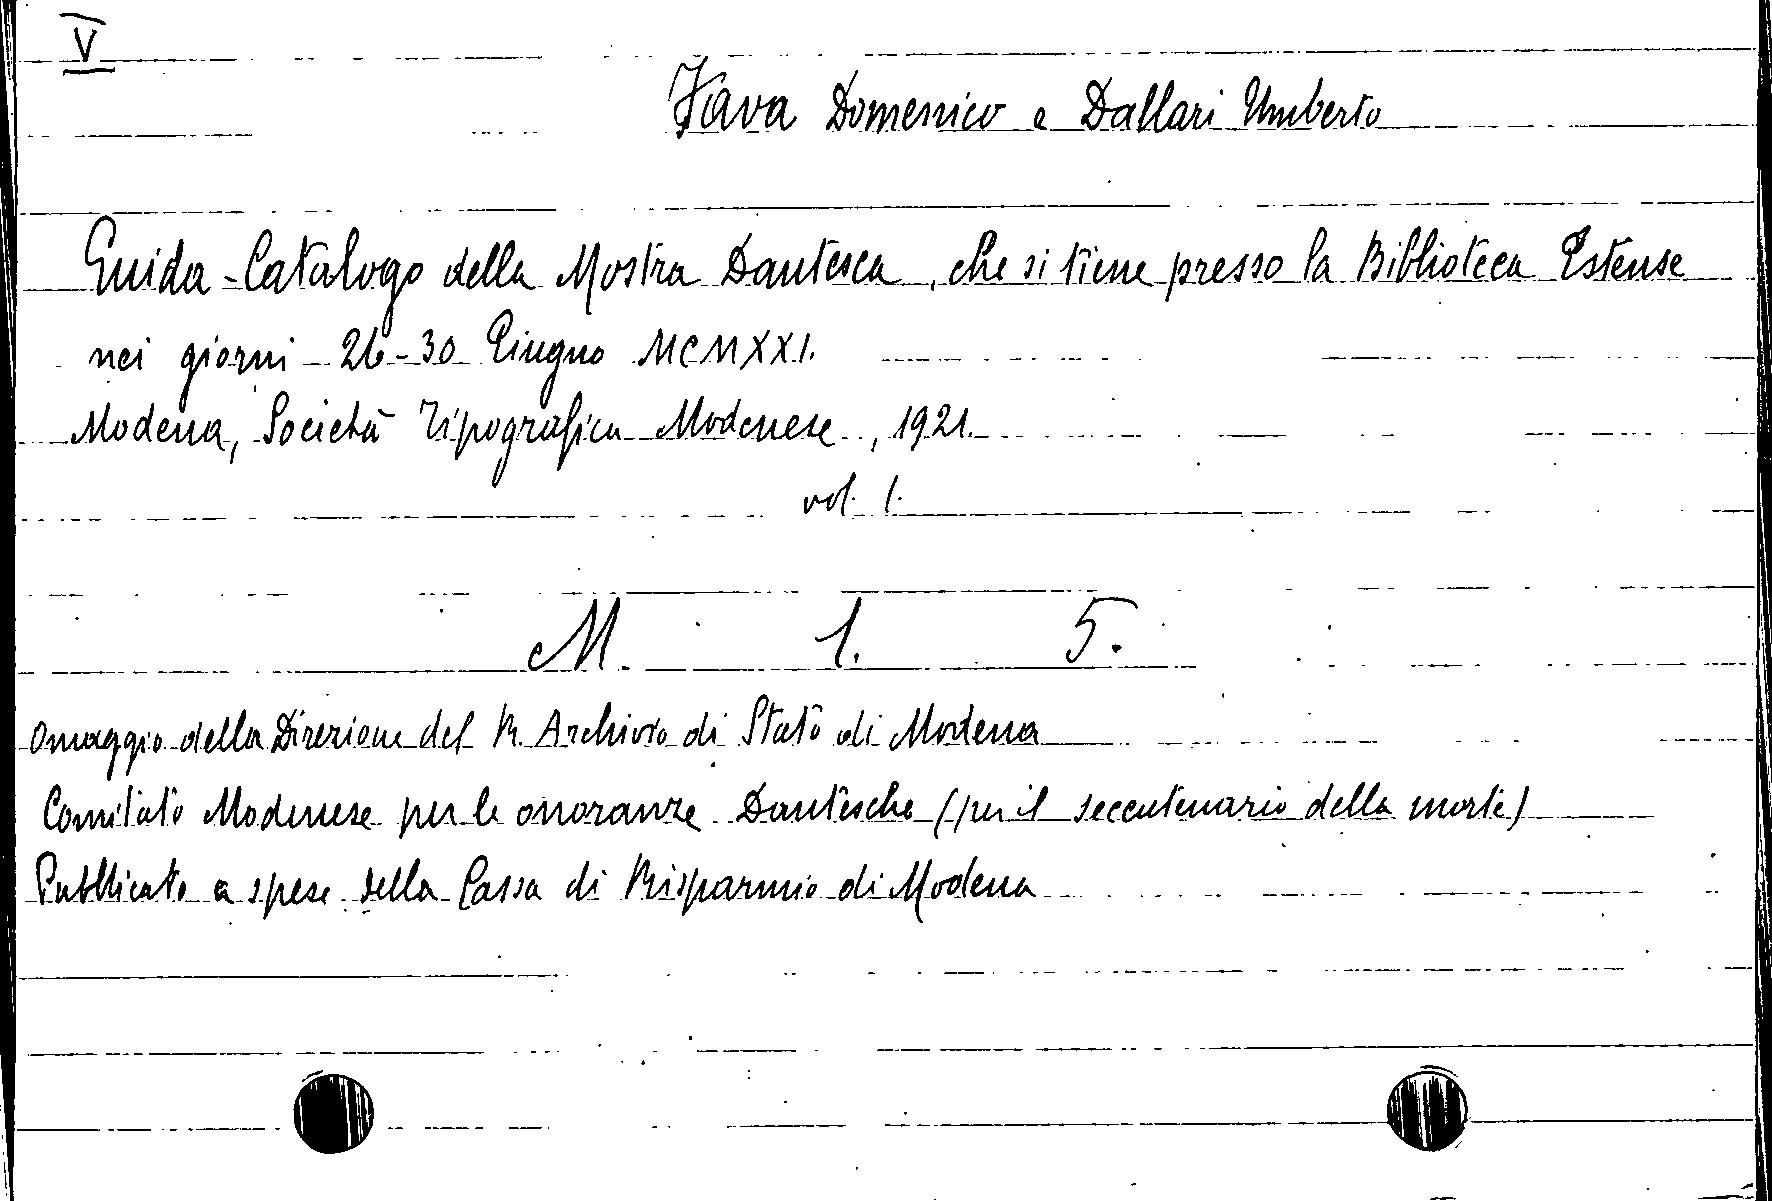 V
Fava Domenico e Dallari Umberto
Guida-Catalogo della Mostra Dantesca, che si tiene presso la Biblioteca Estense
nei giorni 26-30 Giugno MCMXXI.
Modena, Società Tipografica Modenese, 1921.
vol. 1.
M. 1. 5.
Omaggio della Direzione del R. Archivio di Stato di Modena
Comitato Modenese per le onoranze Dantesche (per il seccentenario della morte)
Pubblicato a spese della Cassa di Risparmio di Modena